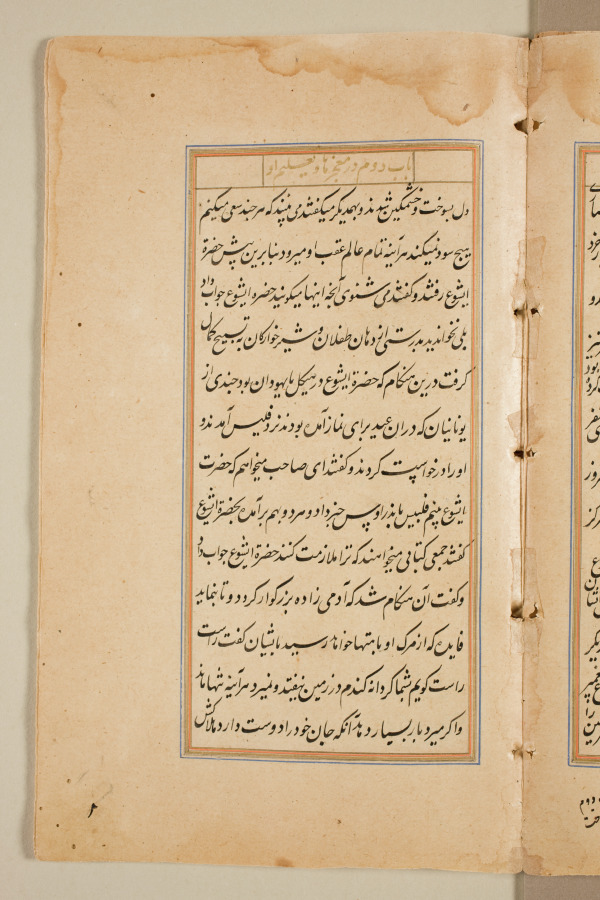 باب دوم در معجزها و تعلیم او
دل بسوخت و خشمکین شدند و بهمدیکر میکفتند می بینید که هر چند سعی میکنم
هیچ سود نمیکند هر آینه تمام عالم عقب او میرود بنابرین پیش حضرة
ایشوع رفتند و کفتند می شنوی آنچه اینها میکویند حضرة ایشوع جواب داد
بلی نخواندید بدرستی از دهان طفلان و شیر خوارکان تسبیح کمال
کرفت درین هنکام که حضرة ایشوع در هیکل با یهودان بود چندی از
یونانیان که دران عید برای نماز آمده بودند نزد فلیپس آمدند و
او را درخواست کردند و کفتند ای صاحب میخواهم که حضرت
ایشوع بینم فلیپس باندراوس خبر داد و هر دو بهم برآمده بحضرة ایشوع
کفتند جمعی کتابی میخواهند که ترا ملازمت کنند حضرة ایشوع جواب داد
و کفت آن هنکام شد که آدمی زاده بزرکوار کردد و تا بنماید
فایده که از مرک او بامتها خواهد رسید با بشان کفت راست
راست کویم شما کر دانه کندم در زمین نیفتد و نمیرد هر آینه تنها ماند
و اکر میرد بار بسیار دهد آنکه جان خود را دوست دارد هلاکش